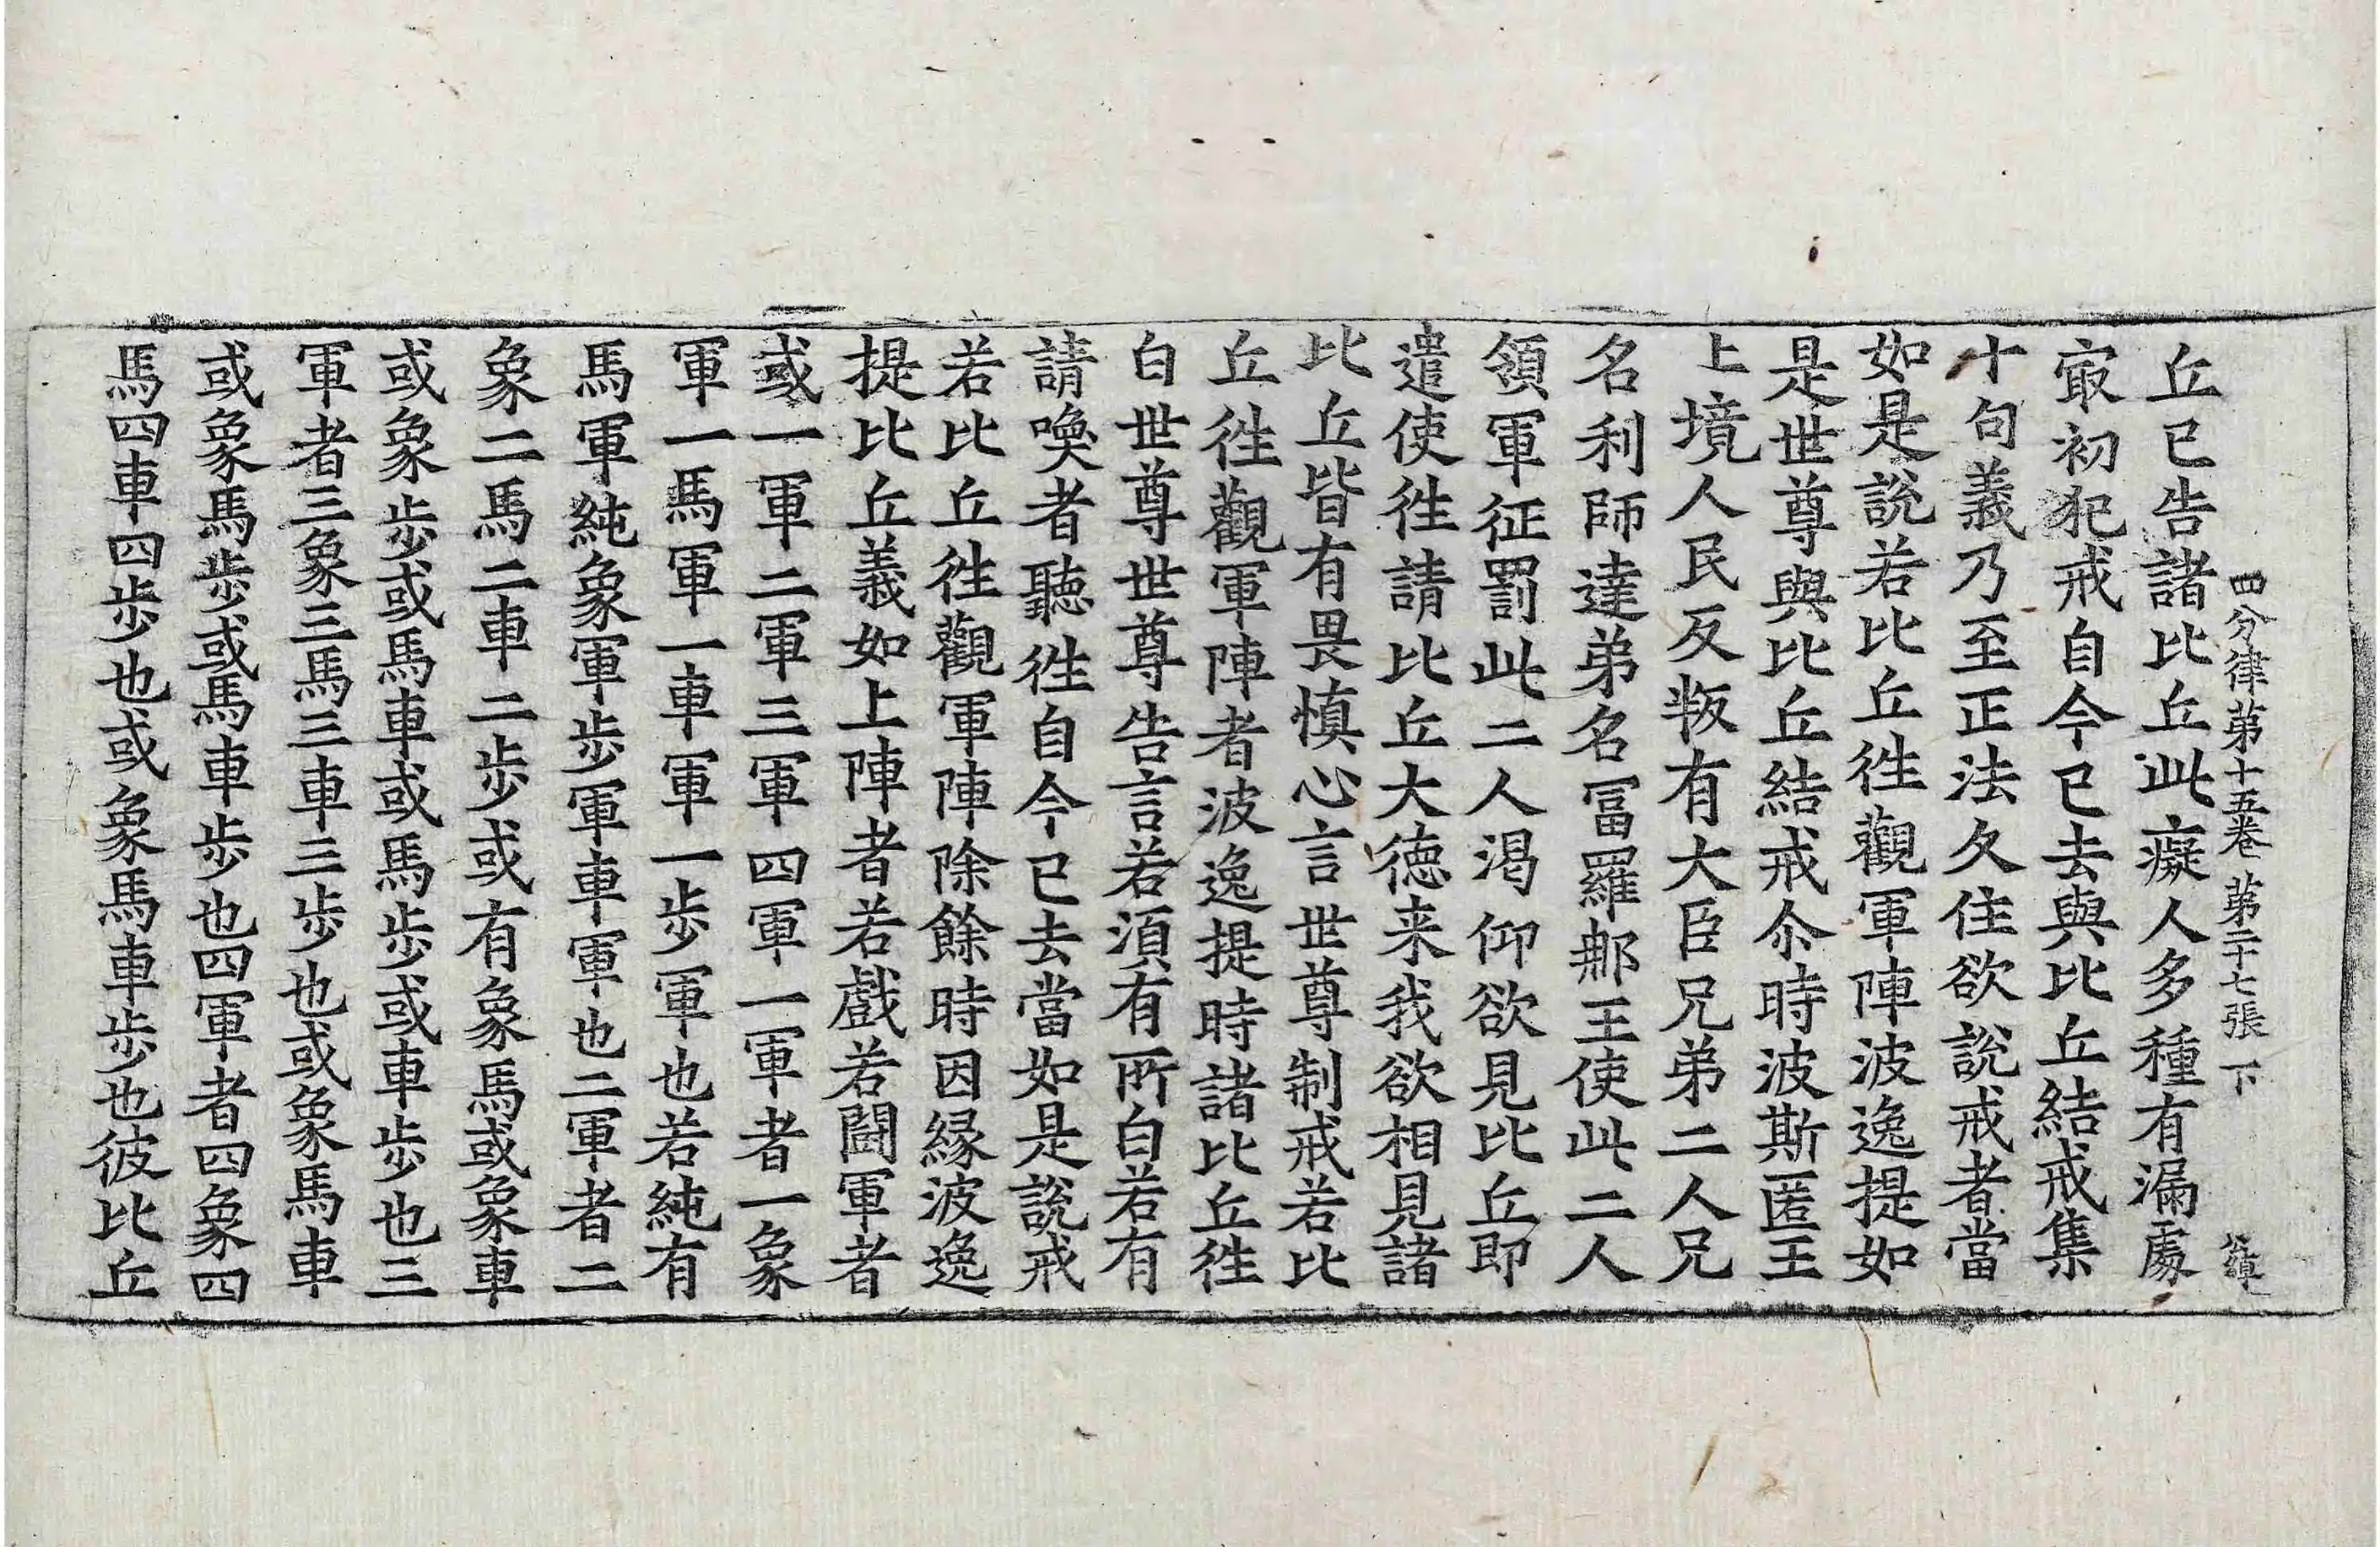 四分律第十五卷 第二十七張 下
丘已告諸比丘此癡人多種有漏處
冣初犯戒自今已去與比丘結戒集
十句義乃至正法久住欲說戒者當
如是說若比丘徃觀軍陣波逸提如
是世尊與比丘結戒尒時波斯匿王
上境人民反叛有大臣兄弟二人兄
名利師達弟名冨羅那王使此二人
領軍征罰此二人渴仰欲見比丘即
遣使徃請比丘大德来我欲相見諸
比丘皆有畏慎心言世尊制戒若比
丘徃觀軍陣者波逸提時諸比丘徃
白世尊世尊告言若須有所白若有
請喚者聽徃自今已去當如是說戒
若比丘徃觀軍陣除餘時因緣波逸
提比丘義如上陣者若戲若鬪軍者
或一軍二軍三軍四軍一軍者一象
軍一馬軍一車軍一步軍也若純有
馬軍純象軍步軍車軍也二軍者二
象二馬二車二步或有象馬或象車
或象步或馬車或馬步或車步也三
軍者三象三馬三車三步也或象馬車
或象馬步或馬車步也四軍者四象四
馬四車四步也或象馬車步也彼比丘